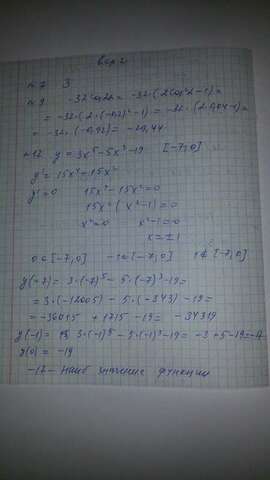 вар 2
№7 3
№9 -32 cos2α = -32·(2cos²α-1) =
= -32·(2·(-0,2)²-1) = -32·(2·0,04-1) =
= -32·(-0,92) = -29,44
№12 y = 3x⁵-5x³-19 [-7;0]
y' = 15x⁴-15x²
y'=0 15x⁴-15x²=0
15x²(x²-1)=0
x²=0 x²-1=0
x=±1
0∈[-7;0] -1∈[-7;0] 1∉[-7;0]
y(-7) = 3·(-7)⁵ - 5·(-7)³-19=
=3·(-16807) - 5·(-343) -19=
= +1715 -19=
y(-1) = 3·(-1)⁵ - 5·(-1)³-19 = -3+5-19=-17
y(0) = -19
-17 - наиб значение функции